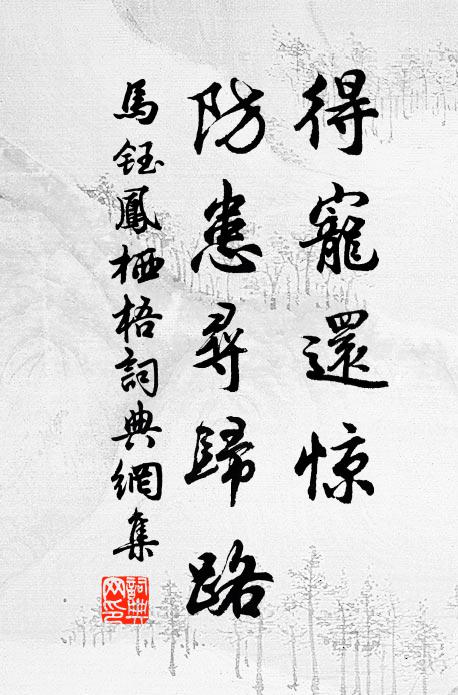 得寵還惊
防患尋歸路
馬鈺鳳栖梧詞典網集
詞典網印